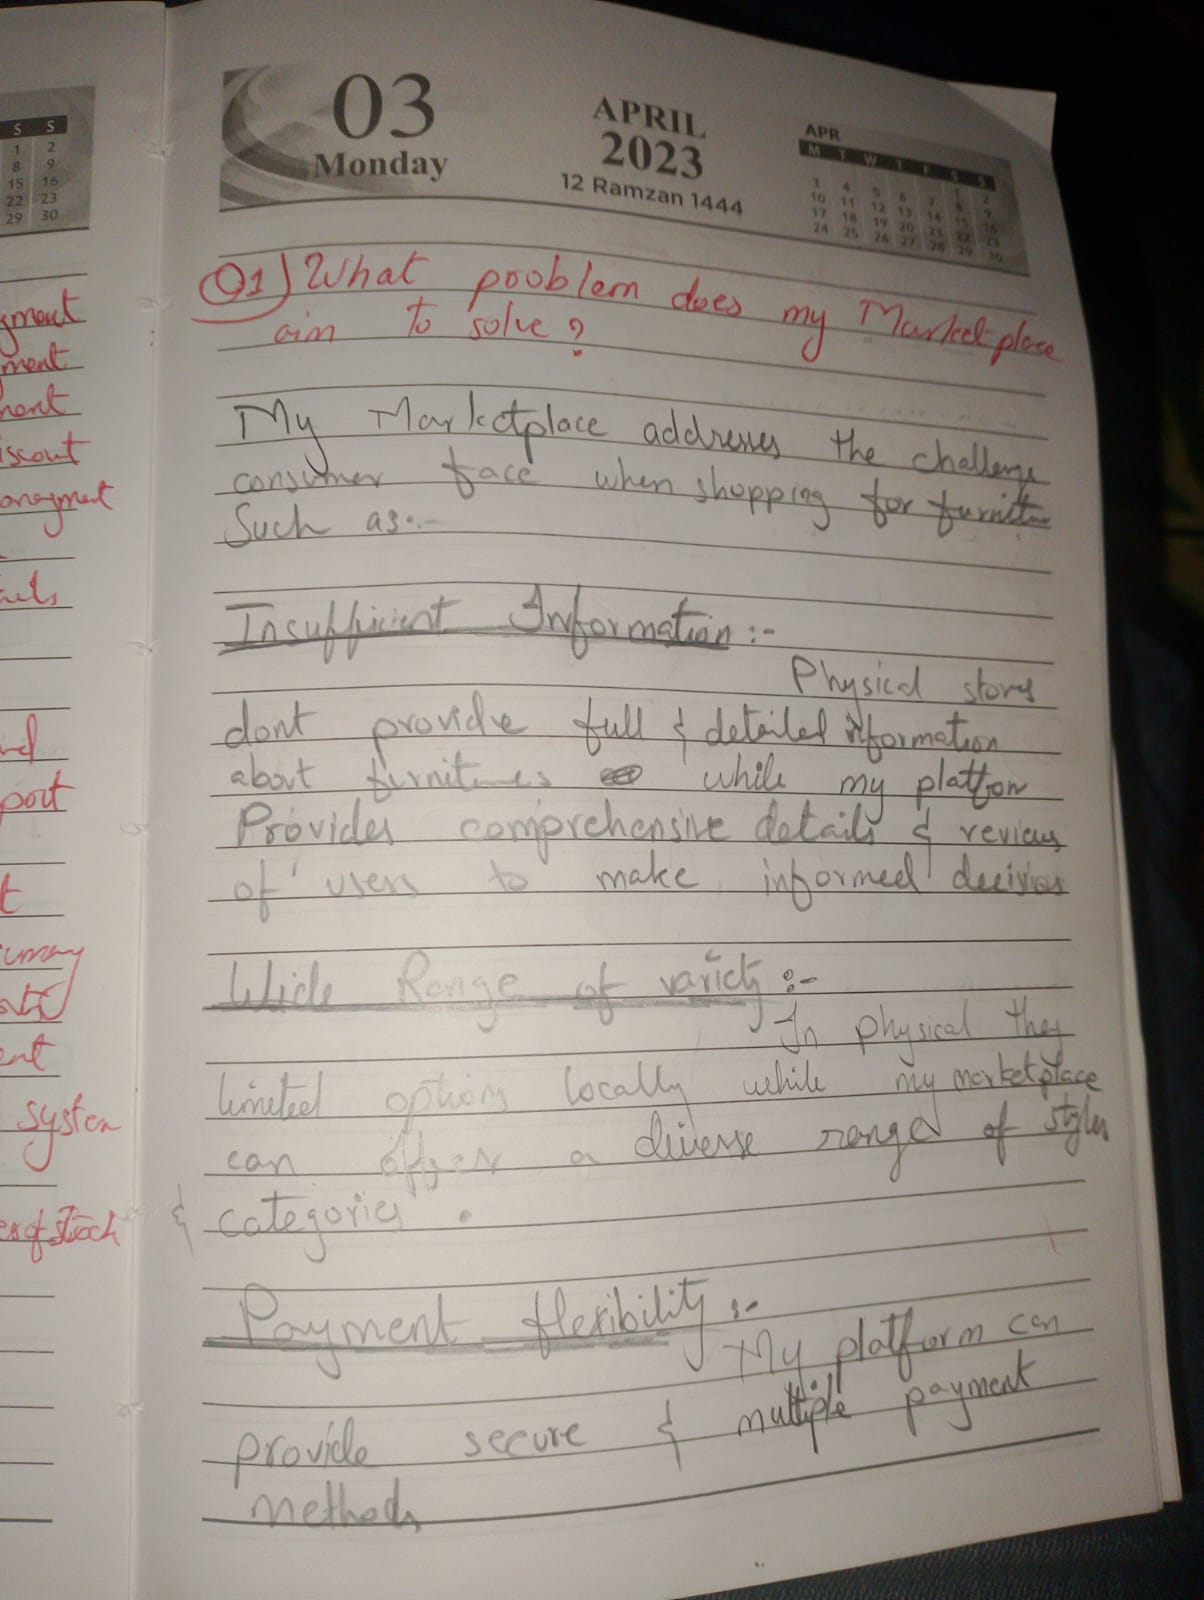 S S
1 2
8 9
15 16
22 23
29 30
03
Monday
APRIL
2023
12 Ramzan 1444
APR
M T W T F S S
1 2
3 4 5 6 7 8 9
10 11 12 13 14 15 16
17 18 19 20 21 22 23
24 25 26 27 28 29 30
Q1) What problem does my Marketplace
aim to solve?
My Marketplace addresses the challenge
consumer face when shopping for furniture
Such as:-
Insufficient Information :-
Physical stores
dont provide full & detailed information
about furnitures while my platform
Provides comprehensive details & reviews
of users to make informed decisions
Wide Range of variety :-
In physical they
limited options locally while my marketplace
can offer a diverse range of styles
& categories.
Payment flexibility :-
My platform can
provide secure & multiple payment
methods
gment
ment
ment
iscount
anagment
port
t
ent
system
of stock